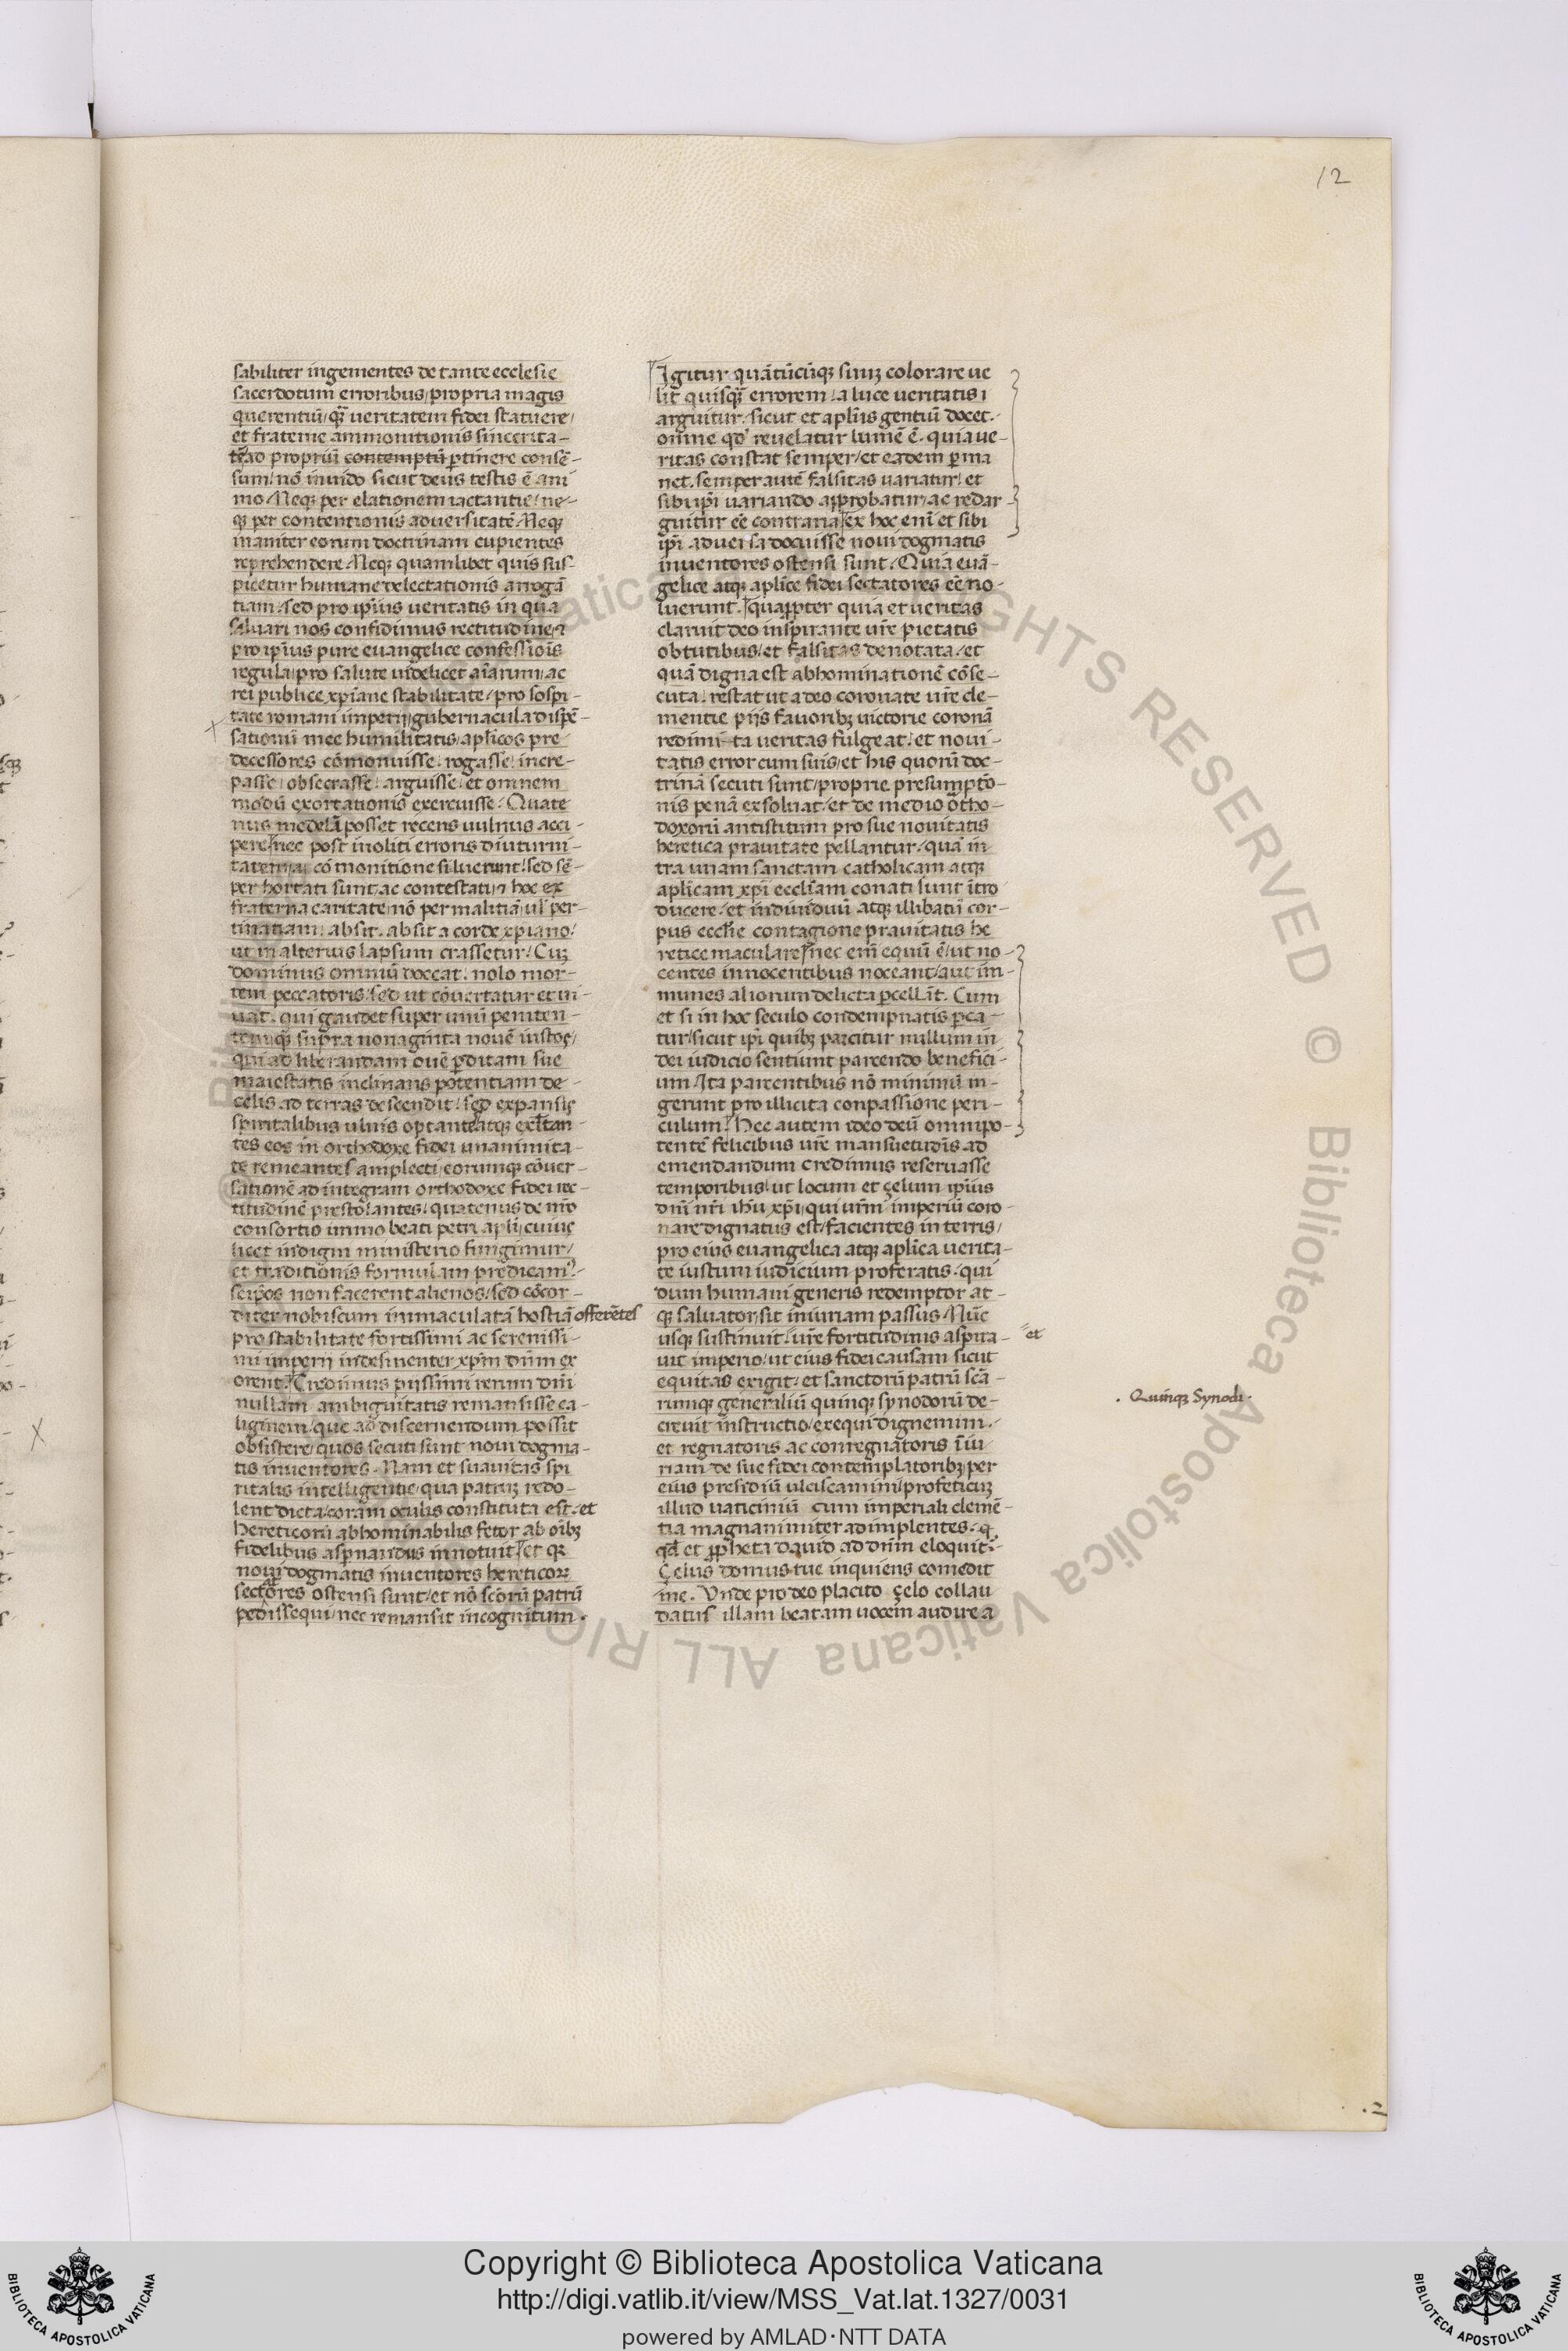 12
sabiliter ingementes de tante ecclesie
sacerdotum erroribus / propria magis
querentiū / qȝ̄ ueritatem fidei statuere /
et fraterne ammonitionis sincerita-
tē ad propriū contemptū ꝑtinere consē-
sum / nō inuido sicut deus testis ē ani
mo / Neqȝ per elationem iactantie / ne-
qȝ per contentionis aduersitatē / Neqȝ
inaniter eorum doctrinam cupientes
reprehendere / Neqȝ quamlibet quis sus-
picetur humane delectationis arrogā
tiam / sed pro ip̄ius ueritatis in qua
saluari nos confidimus rectitudine / ⁊
pro ip̄ius pure euangelice confessiōis
regula / pro salute uidelicet aīarum / ac
rei publice xp̄iane stabilitate / pro sospi-
tate romani imperii / gubernacula dispē-
sationū mee humilitatis / apl̄icos pre
decessores cōmonuisse / rogasse / incre-
passe / obsecrasse / arguisse / et omnem
modū exortationis exercuisse / Quate
nus medelā posset recens uulnus acci-
pere / nec post inoliti erroris diuturni-
tatem / a cōmonitione siluerunt / sed sē-
per hortati sunt / ac contestati / ⁊ hoc ex
fraterna caritate / nō per malitiā / ul̄ per-
tinatiam / absit / absit a corde xp̄iano /
ut in alterius lapsum crassetur / Cuȝ
dominus omniū doceat / nolo mor-
tem peccatoris / sed ut cōuertatur et ui-
uat / qui gaudet super unū peniten-
tem / qȝ̄ supra nonaginta nouē iustos /
qui ad liberandam ouē ꝑditam sue
maiestatis inclinans potentiam de
celis ad terras descendit / sed expansis
spiritalibus ulnis optante atqȝ exl̄tan-
tes eos in orthodoxe fidei unanimita-
te remeantes amplecti / eorumqȝ cōuer-
sationē ad integram orthodoxe fidei rec-
titudinē prestolantes / quatenus de nr̄o
consortio immo beati petri apl̄i / cuius
licet indigni ministerio fungimur /
et traditionis formulam predicamꝰ /
seip̄os non facerent alienos / sed cōcor-
diter nobiscum immaculatā hostiā offerētes
pro stabilitate fortissimi ac serenissi-
mi imperii indesinenter xp̄m dn̄m ex
orent / Credimus piissimi rerum dn̄i
nullam ambiguitatis remansisse ca-
liginem / que ad discernendum possit
obsistere / quos secuti sunt noui dogma-
tis inuentores / Nam et suauitas spi
ritalis intelligentie / qua patrūȝ redo-
lent dicta / coram oculis constituta est / et
hereticorū abhominabilis fetor ab oībȝ
fidelibus asꝑnandus innotuit / et qȝ
noui dogmatis inuentores hereticorȝ
sectatores ostensi sunt / et nō sc̄orū patrū
pedissequi / nec remansit incognitum /
Igitur quātūcūqȝ sinȝ colorare ue
lit quisqȝ̄ errorem / a luce ueritatis /
arguitur / sicut et apl̄us gentiū docet /
omne qd̄ reuelatur lumē ē / quia ue
ritas constat semper / et eadem ꝑma
net / semper autē falsitas uariatur / et
sibi ip̄i uariando approbatur / ac redar
guitur eē contraria / ex hoc eni et sibi
ip̄i aduersa docuisse noui dogmatis
inuentores ostensi sunt / Quia euā-
gelice atqȝ apl̄ice fidei sectatores eē no-
luerunt / quapp̄ter quia et ueritas
claruit deo inspirante ur̄e pietatis
obtutibus / et falsitas denotata / et
quā digna est abhominationē cōse-
cuta / restat ut a deo coronate ur̄e cle-
mentie piis fauoribȝ uictorie coronā
redimi-ta ueritas fulgeat / et noui-
tatis error cum suis / et his quorū doc-
trinā secuti sunt / proprie presumptō-
nis penā exsoluat / et de medio ōtho-
doxorū antistitum pro sue nouitatis
heretica prauitate pellantur / quā in
tra unam sanctam catholicam atqȝ
apl̄icam xp̄i eccl̄iam conati sunt ītro
ducere / et indiuiduū atqȝ illibatū cor-
pus eccl̄ie contagione prauitatis he
retice maculare / nec eni equū ē / ut no-
centes innocentibus noceant / aut im-
munes aliorum delicta ꝑcellāt. Cum
et si in hoc seculo condempnatis ꝑca-
tur / sicut ip̄i quibȝ parcitur nullum in
dei iudicio sentiunt parcendo benefici-
um / Ita parcentibus nō minimū in-
gerunt pro illicita conpassione peri-
culum / Hec autem ideo deū omnipo-
tentē felicibus ur̄e mansuetudīs ad
emendandum credimus reseruasse
temporibus / ut locum et çelum ip̄ius
dn̄i nr̄i ih̄u xp̄i / qui ur̄m imperiū coro-
nare dignatus est / facientes in terris /
pro eius euangelica atqȝ apl̄ica uerita-
te iustum iudicium proferatis / qui
dum humani generis redemptor at-
qȝ saluator sit iniuriam passus / Nūc
usqȝ sustinuit / ur̄e fortitudinis aspira- et
uit imperio / ut eius fidei causam sicut
equitas exigit / et sanctorū patrū scā-
rumqȝ generaliū quinqȝ synodorū de-
creuit instructio / exequi dignemini /
. Quinqȝ Synodi .
et regnatoris ac conregnatoris īiu
riam de sue fidei contemplatoribȝ per
eius presidiū ulciscamini / profeticuȝ
illud uaticiniū cum imperiali clemē-
tia magnanimiter adimplentes / q
qd̄ et ꝓpheta dauid ad dn̄m eloquit /
Çelus domus tue inquiens comedit
me / Unde pro deo placito çelo collau
datus illam beatam uocem audire a
Copyright © Biblioteca Apostolica Vaticana
http://digi.vatlib.it/view/MSS_Vat.lat.1327/0031
powered by AMLAD·NTT DATA
BIBLIOTECA APOSTOLICA VATICANA
BIBLIOTECA APOSTOLICA VATICANA
© Biblioteca Apostolica Vaticana ALL RIGHTS RESERVED